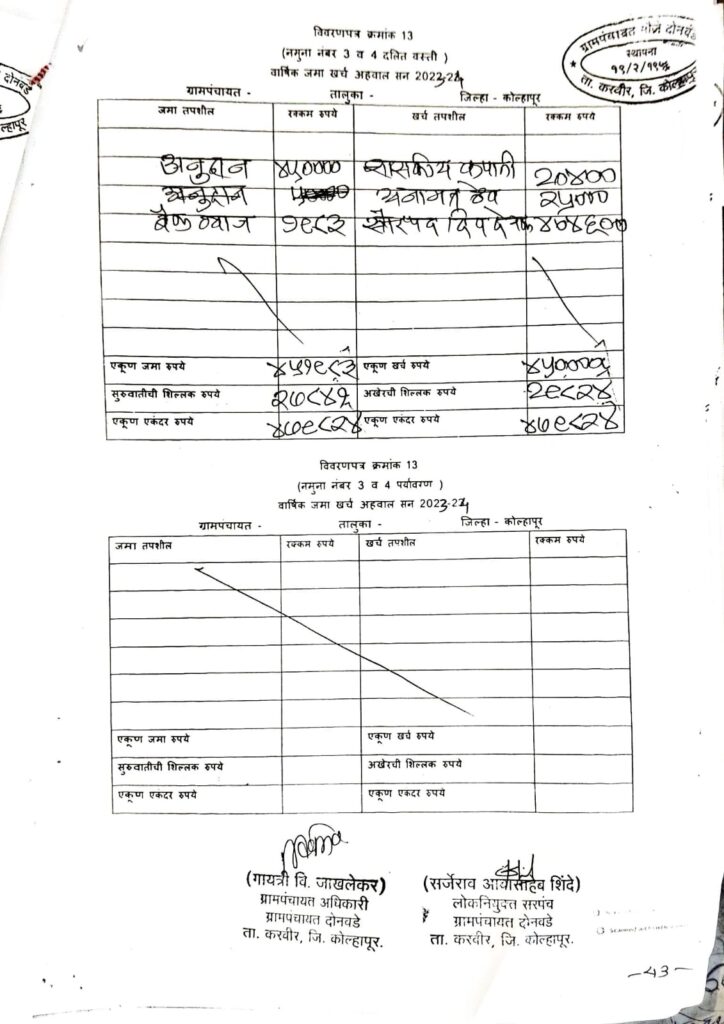 विवरणपत्र क्रमांक 13
(नमुना नंबर 3 व 4 दलित वस्ती )
वार्षिक जमा खर्च अहवाल सन 2023-24
ग्रामपंचायत - तालुका - जिल्हा - कोल्हापूर
ग्रामपंचायत मौजे दोनवडे
स्थापना
ता. करवीर, जि. कोल्हापूर
जमा तपशील रक्कम रुपये खर्च तपशील रक्कम रुपये
अनुदान ४५०००० शासकीय कपाती २०४००
अनुदान अनामत ठेव २५०००
बँक व्याज १९८३ ४०४६००
एकूण जमा रुपये ४५१९८३ एकूण खर्च रुपये ४५००००
सुरुवातीची शिल्लक रुपये २७८४१ अखेरची शिल्लक रुपये २९८२४
एकूण एकंदर रुपये ४७९८२४ एकूण एकंदर रुपये ४७९८२४
विवरणपत्र क्रमांक 13
(नमुना नंबर 3 व 4 पर्यावरण )
वार्षिक जमा खर्च अहवाल सन 2023-24
ग्रामपंचायत - तालुका - जिल्हा - कोल्हापूर
जमा तपशील रक्कम रुपये खर्च तपशील रक्कम रुपये
एकूण जमा रुपये एकूण खर्च रुपये
सुरुवातीची शिल्लक रुपये अखेरची शिल्लक रुपये
एकूण एकंदर रुपये एकूण एकंदर रुपये
(गायत्री वि. जाखलेकर) (सर्जेराव आबासाहेब शिंदे)
ग्रामपंचायत अधिकारी लोकनियुक्त सरपंच
ग्रामपंचायत दोनवडे ग्रामपंचायत दोनवडे
ता. करवीर, जि. कोल्हापूर. ता. करवीर, जि. कोल्हापूर.
-43-